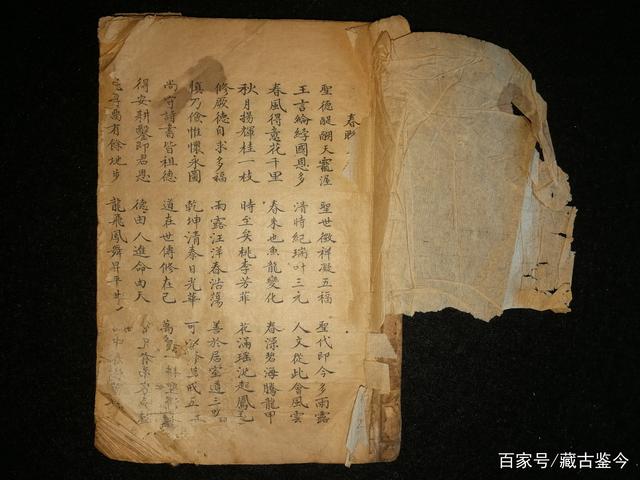 春聯
聖德醍醐天寵渥 聖世徵祥凝五福 聖代即今多雨露
王言綸綍國恩多 清時紀瑞叶三元 人文從此會風雲
春風得意花千里 春來也魚龍變化 春深碧海騰龍甲
秋月揚輝桂一枝 時至矣桃李芳菲 花滿瑤池起鳳毛
修厥德自求多福 雨露汪洋春浩蕩 善於居室道三
慎乃儉惟懷永圖 乾坤清泰日光華 可成五
尚守詩書皆祖德 道在世傳修在己 萬
得安耕鑿即君恩 德由人進命由天
尚有餘地步 龍飛鳳舞昇平 中
百家号/藏古鉴今